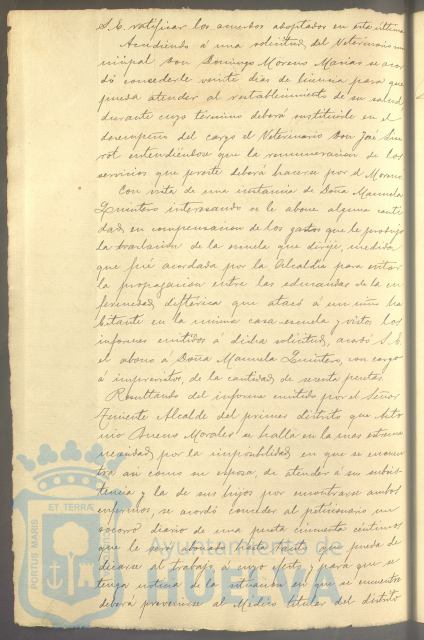 S.E. ratificar los acuerdos adoptados en esta última
Accediendo á una solicitud del Veterinario mu
nicipal Don Domingo Moreno Macías se acor
dó concederle veinte dias de licencia para que
pueda atender al restablecimiento de su salud,
durante cuyo término deberá sustituirle en el
desempeño del cargo el Veterinario Don José
rot entendiéndose que la remuneracion de los
servicios que preste deberá hacerse por el Sr. Moreno
Con vista de una instancia de Doña Manuela
Quintero interesando se le abone alguna canti
dad en compensacion de los gastos que le produjo
la traslacion de la escuela que dirije, medida
que fué acordada por la Alcaldía para evitar
la propagacion entre las educandas de la en
fermedad diftérica que atacó á un niño ha
bitante en la misma casa escuela y vistos los
informes emitidos á dicha solicitud, acordó S.E.
el abono á Doña Manuela Quintero, con cargo
á imprevistos, de la cantidad de pesetas.
Resultando del informe emitido por el Señor
Teniente Alcalde del primer distrito que Anto
nio Morales se halla en la mas estrema
necesidad por la imposibilidad en que se encuen
tra asi como su esposa, de atender á su subsis
tencia y la de sus hijos por encontrarse ambos
enfermos, se acordó conceder al peticionario un
socorro diario de una peseta cincuenta centimos
que le será abonado hasta tanto que pueda de
dicarse al trabajo, á cuyo efecto y para que se
tenga noticia de la situacion en que se encuentre
deberá prevenirse al Médico titular del distrito
PORTUS MARIS ET TERRAE
Ayuntamiento de
HUELVA